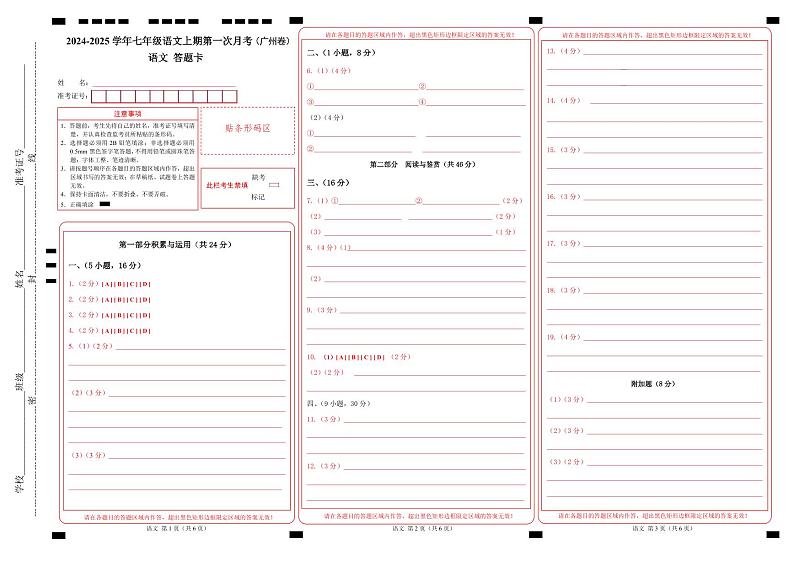 2024-2025 学年七年级语文上期第一次月考（广州卷）
语文 答题卡
姓　　名：
准考证号：
注意事项
1．答题前，考生先将自己的姓名，准考证号填写清
楚，并认真检查监考员所粘贴的条形码。
2．选择题必须用 2B 铅笔填涂；非选择题必须用
0.5mm 黑色签字笔答题，不得用铅笔或圆珠笔答
题；字体工整、笔迹清晰。
3．请按题号顺序在各题目的答题区域内作答，超出
区域书写的答案无效；在草稿纸、试题卷上答题
无效。
4．保持卡面清洁，不要折叠、不要弄破。
5．正确填涂
贴条形码区
此栏考生禁填
缺考
标记
准考证号
姓名
班级
学校
线
封
密
第一部分积累与运用（共 24 分）
一、（5 小题，16 分）
1.（2 分）[A][B][C][D]
2.（2 分）[A][B][C][D]
3.（2 分）[A][B][C][D]
4.（2 分）[A][B][C][D]
5.（1）（2 分）
（2）（3 分）
（3）（3 分）
请在各题目的答题区域内作答，超出黑色矩形边框限定区域的答案无效！
语文 第 1 页（共 6 页）
请在各题目的答题区域内作答，超出黑色矩形边框限定区域的答案无效！
二、（1 小题，8 分）
6.（1）（4 分）
① ②
③ ④
（2）（4 分）
①
②
第二部分　阅读与鉴赏（共 46 分）
三、（16 分）
7.（1）① ② （2 分）
（2） （2 分）
（3） （1 分）
8.（4 分）（1）
（2）
9.（3 分）
10.（1）[A][B][C][D]（2 分）
（2）（2 分）
四、（9 小题，30 分）
11.（3 分）
12.（3 分）
请在各题目的答题区域内作答，超出黑色矩形边框限定区域的答案无效！
语文 第 2 页（共 6 页）
请在各题目的答题区域内作答，超出黑色矩形边框限定区域的答案无效！
13.（4 分）
14.（4 分）
15.（3 分）
16.（3 分）
17.（3 分）
18.（3 分）
19.（4 分）
附加题（8 分）
（1）（3 分）
（2）（3 分）
（3）（2 分）
请在各题目的答题区域内作答，超出黑色矩形边框限定区域的答案无效！
语文 第 3 页（共 6 页）